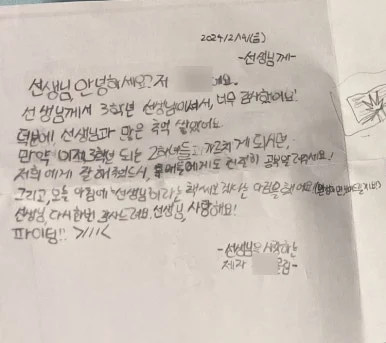 2024/2/9(금)
-선생님께-
선생님, 안녕하세요? 저 예요.
선생님께서 3학년 선생님이셔서, 너무 감사했어요!
덕분에 선생님과 많은 추억 쌓았어요.
만약 이제 3학년 되는 2학년들 가르치게 되시면,
저희에게 잘 해 주셨듯이, 에게도 친절히 해주세요!
그리고, 오늘 아침에 선생님
선생님, 다시 한번 감사드려요. 선생님, 사랑해요!
파이팅!! >///<
-선생님을 사랑하는
제자 올림-